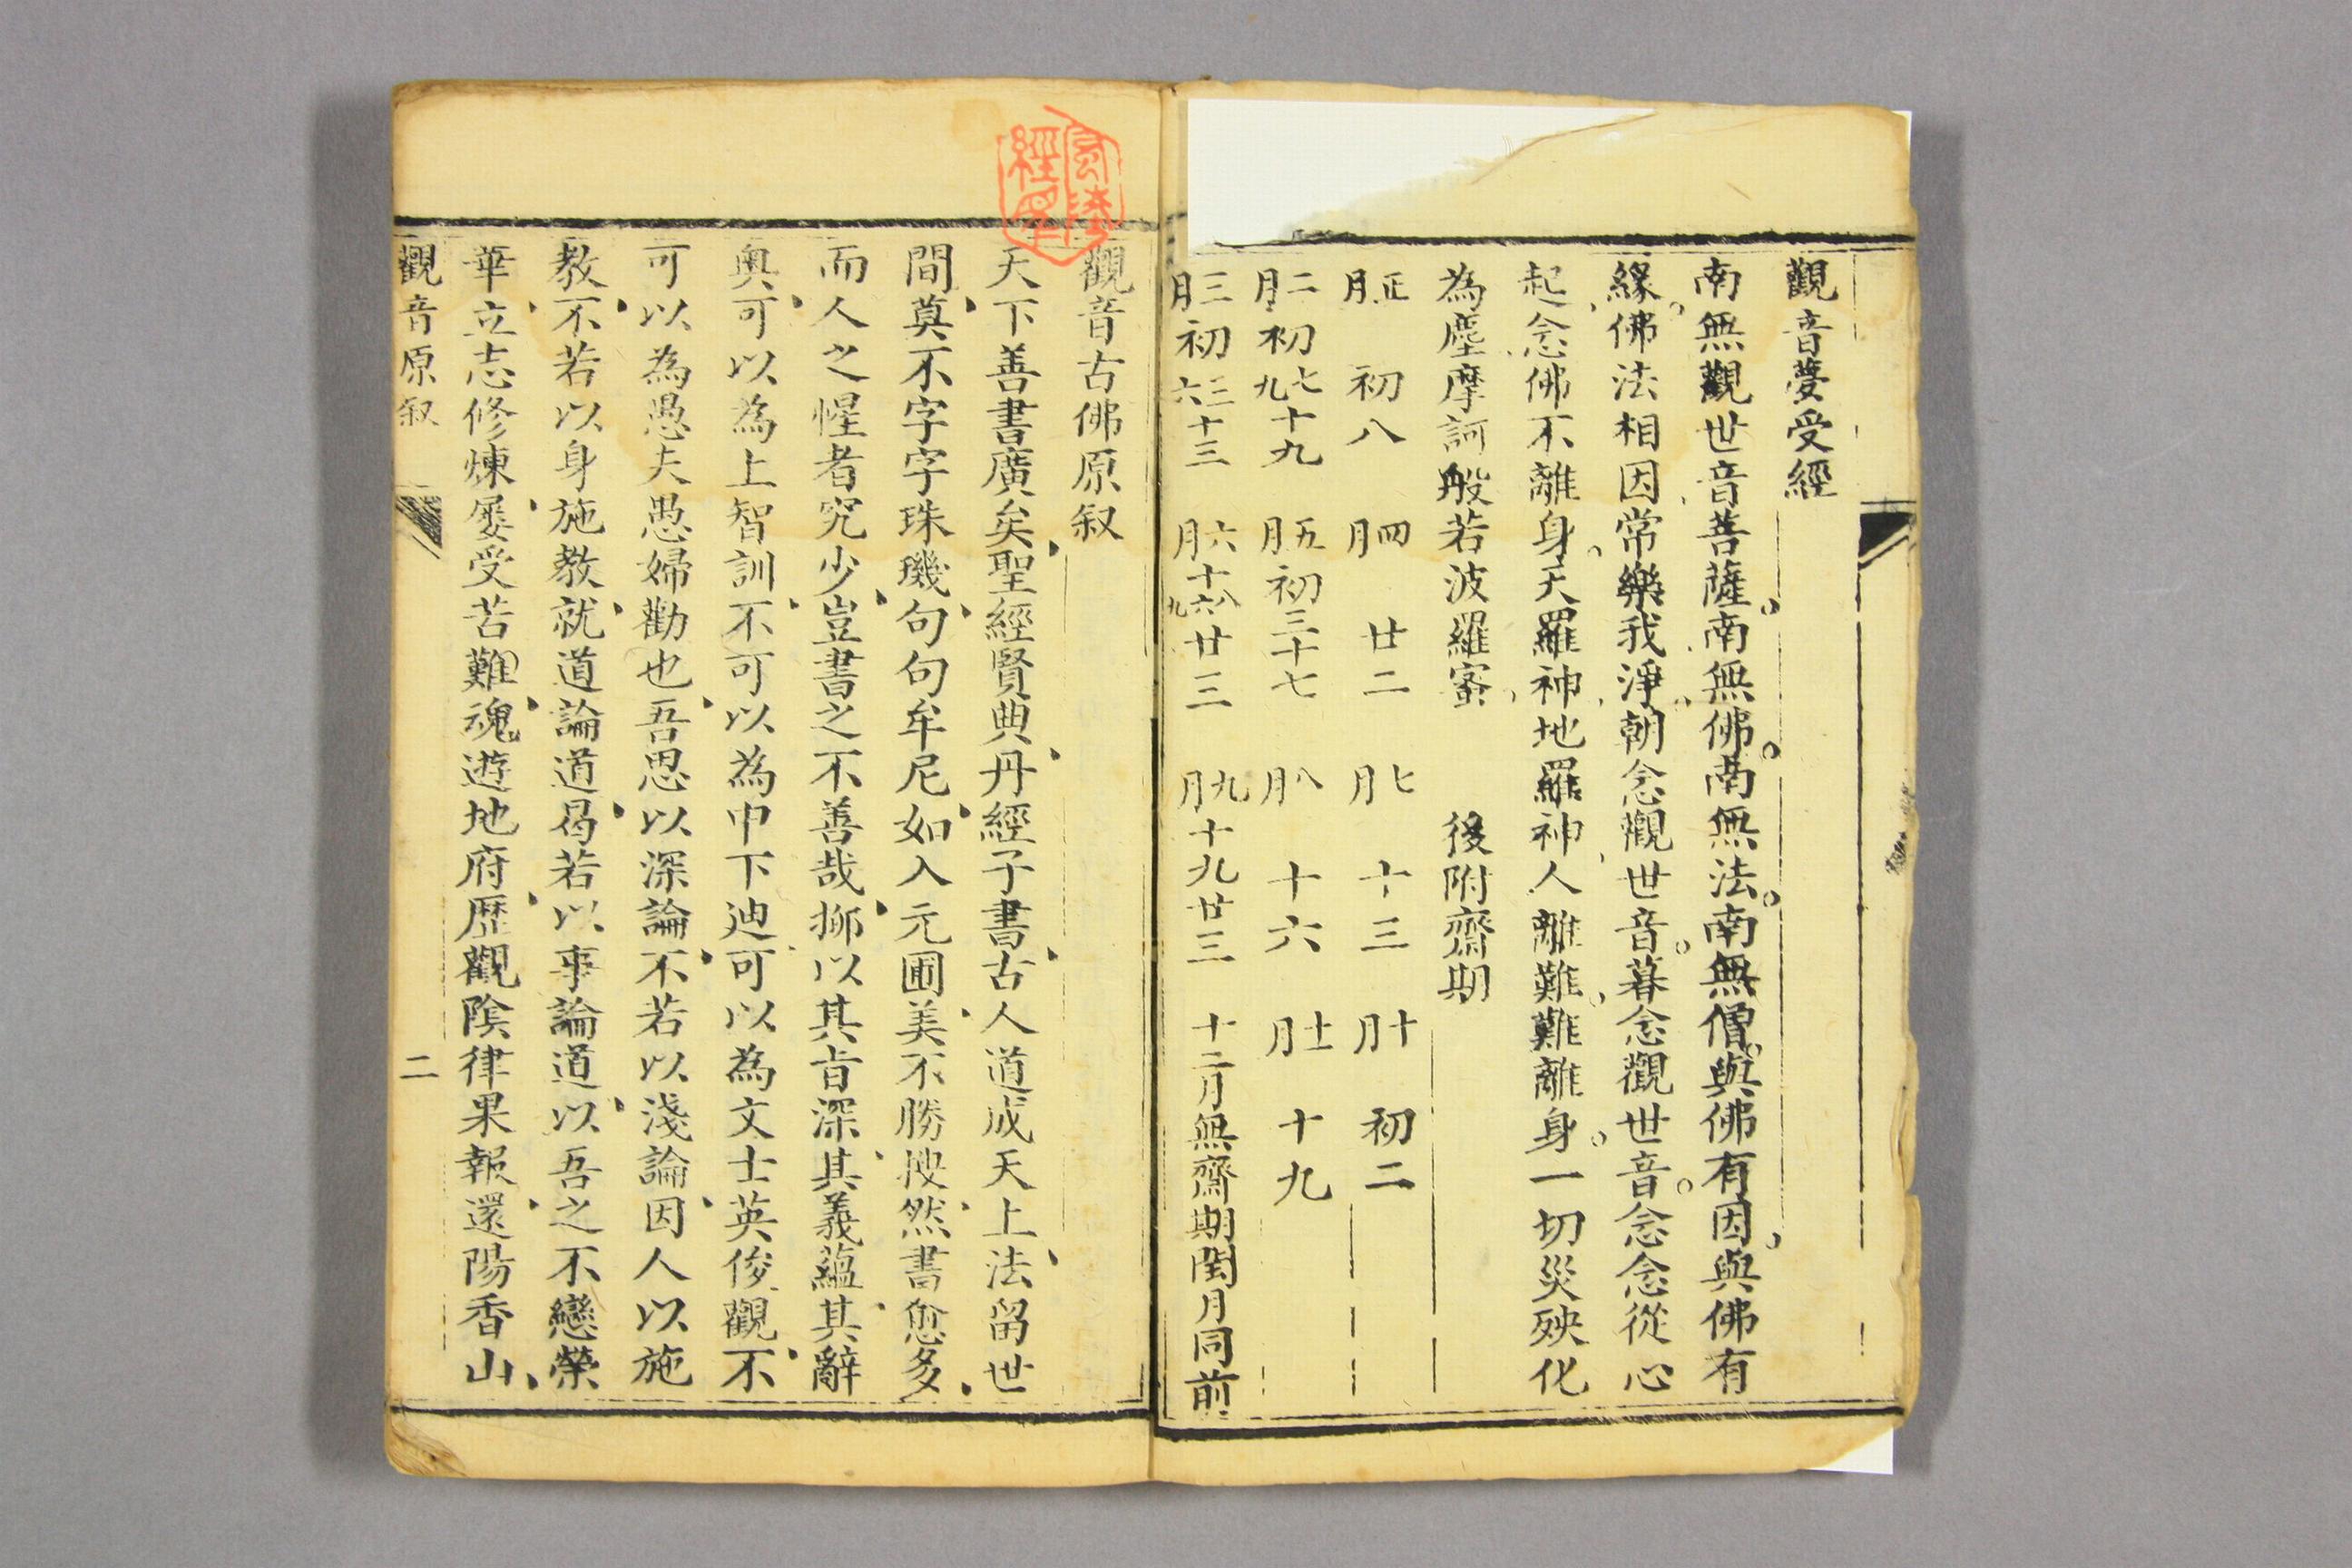 觀音夢受經
南無觀世音菩薩南無佛南無法南無僧與佛有因與佛有
緣佛法相因常樂我淨朝念觀世音暮念觀世音念念從心
起念佛不離身天羅神地羅神人離難難離身一切災殃化
為塵摩訶般若波羅蜜 後附齋期
正月 初八 四月 廿二 七月 十三 十月 初二
二月初七九十九 五月初三十七 八月 十六 十一月 十九
三月初三六十三 六月十六八九廿三 九月十九廿三 十二月無齋期閏月同前
觀音古佛原叙
天下善書廣矣聖經賢典丹經子書古人道成天上法留世
間莫不字字珠璣句句牟尼如入元圃美不勝搜然書愈多
而人之惺者究少豈書之不善哉抑以其旨深其義蘊其辭
奧可以為上智訓不可以為中下迪可以為文士英俊觀不
可以為愚夫愚婦勸也吾思以深論不若以淺論因人以施
教不若以身施教就道論道曷若以事論道以吾之不戀榮
華立志修煉屢受苦難魂遊地府歷觀陰律果報還陽香山
觀音原叙 二